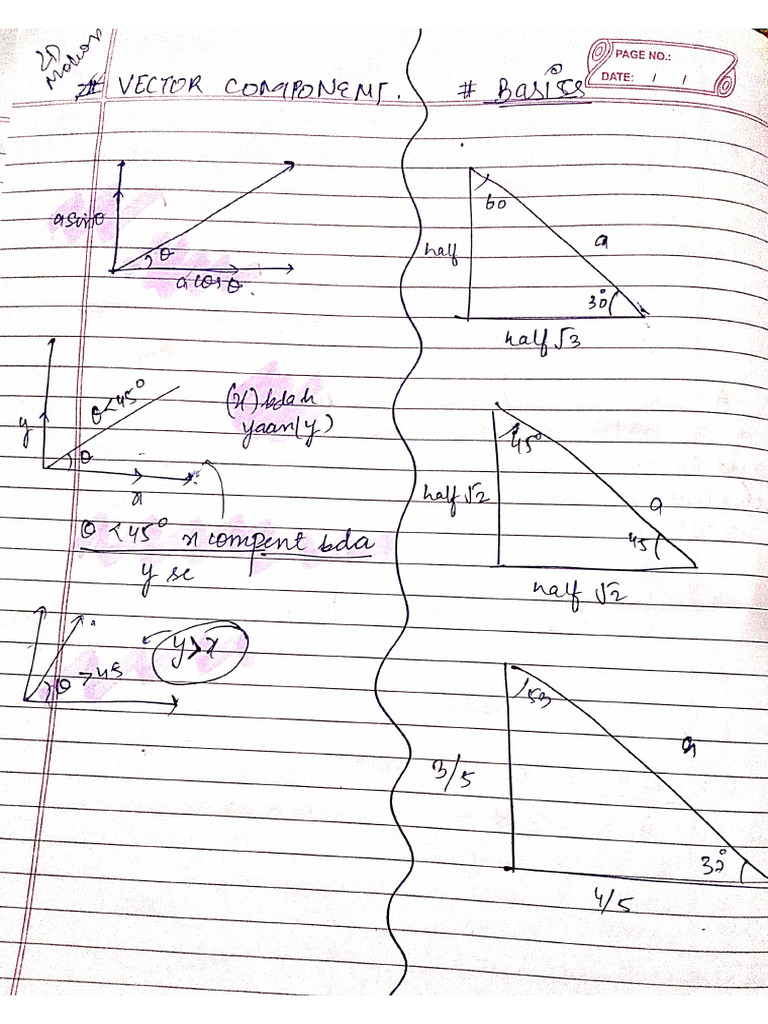 2D
Motion
# VECTOR COMPONENT.
asinθ
θ
acosθ.
y
θ<45°
θ
x
(x) bda h
yaani y)
θ <45° x compent bda
y se
θ > 45
y>x
# Basics
PAGE NO.:
DATE: / /
60
half
a
30°
half √3
45°
half √2
a
45
half √2
53
3/5
a
37°
4/5